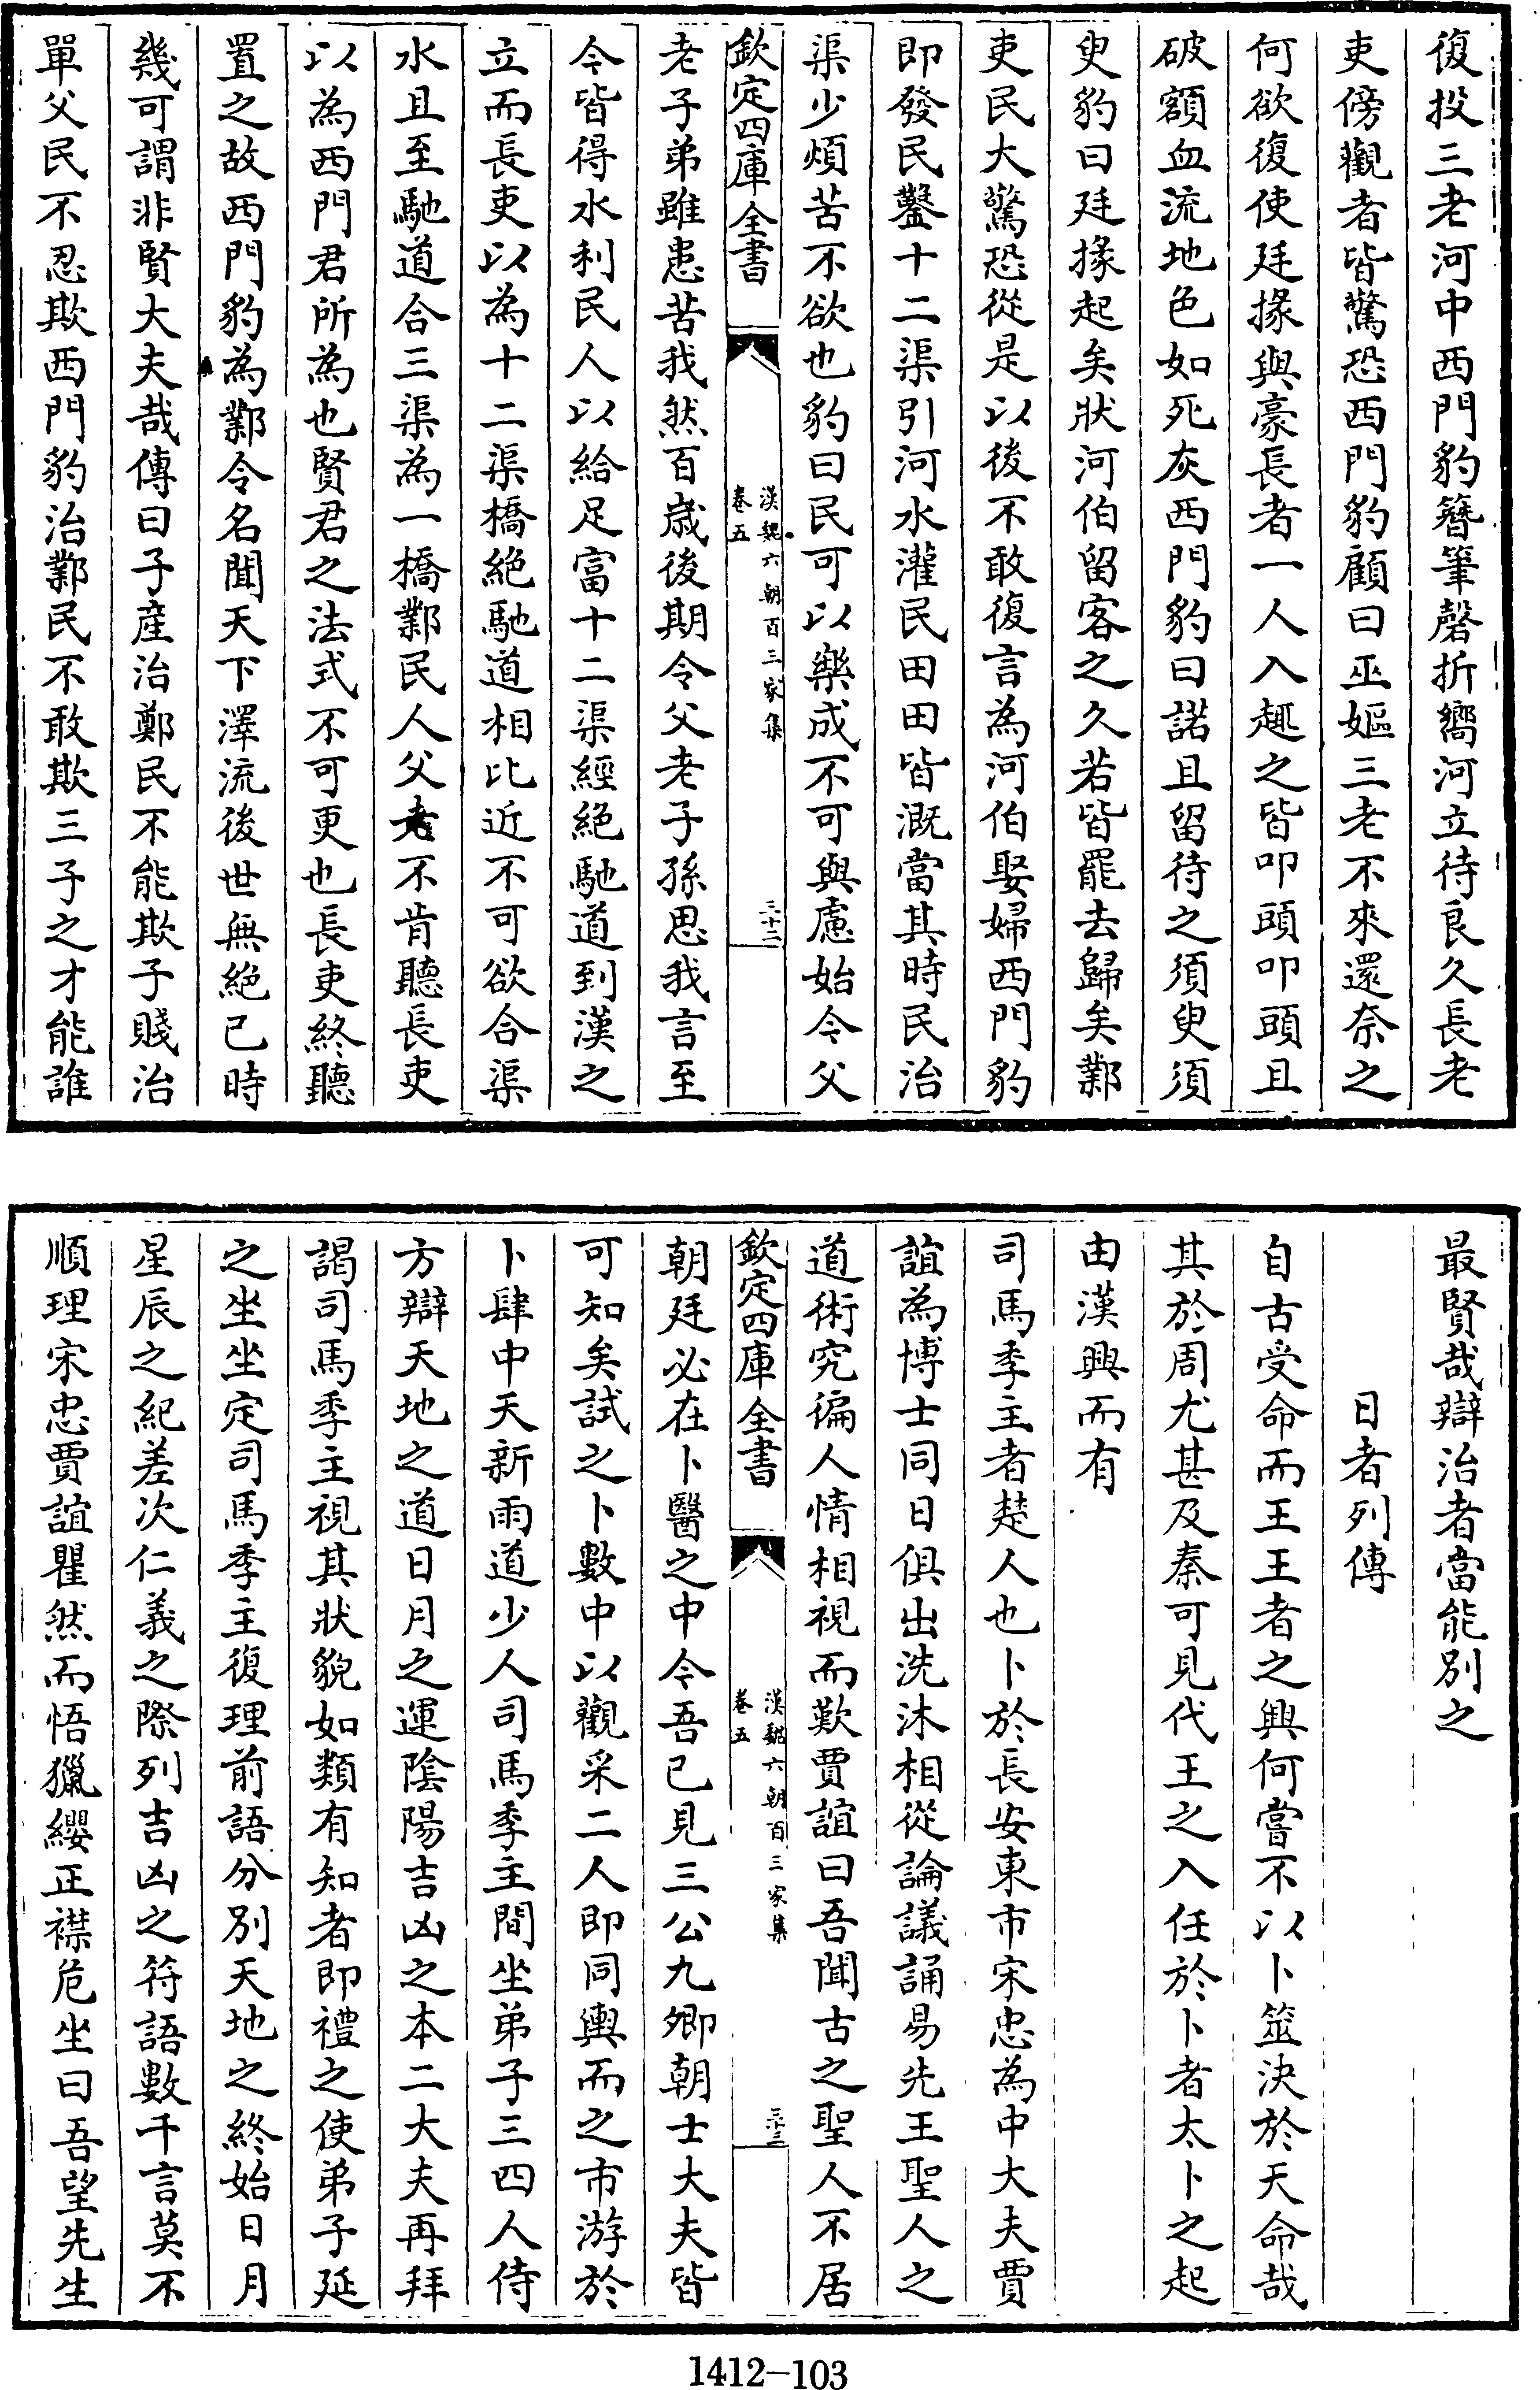 復投三老河中西門豹簪筆磬折嚮河立待良久長老
吏傍觀者皆驚恐西門豹顧曰巫嫗三老不來還奈之
何欲復使廷掾與豪長者一人入趣之皆叩頭叩頭且
破額血流地色如死灰西門豹曰諾且留待之須臾須
臾豹曰廷掾起矣狀河伯留客之久若皆罷去歸矣鄴
吏民大驚恐從是以後不敢復言為河伯娶婦西門豹
即發民鑿十二渠引河水灌民田田皆溉當其時民治
渠少煩苦不欲也豹曰民可以樂成不可與慮始今父
欽定四庫全書
漢魏六朝百三家集
卷五
三十二
老子弟雖患苦我然百歳後期令父老子孫思我言至
今皆得水利民人以給足富十二渠經絶馳道到漢之
立而長吏以為十二渠橋絶馳道相比近不可欲合渠
水且至馳道合三渠為一橋鄴民人父老不肯聽長吏
以為西門君所為也賢君之法式不可更也長吏終聽
置之故西門豹為鄴令名聞天下澤流後世無絶已時
幾可謂非賢大夫哉傳曰子產治鄭民不能欺子賤治
單父民不忍欺西門豹治鄴民不敢欺三子之才能誰
最賢哉辯治者當能別之
日者列傳
自古受命而王王者之興何嘗不以卜筮決於天命哉
其於周尤甚及秦可見代王之入任於卜者太卜之起
由漢興而有
司馬季主者楚人也卜於長安東市宋忠為中大夫賈
誼為博士同日俱出洗沐相從論議誦易先王聖人之
道術究徧人情相視而歎賈誼曰吾聞古之聖人不居
欽定四庫全書
漢魏六朝百三家集
卷五
三十三
朝廷必在卜醫之中今吾已見三公九卿朝士大夫皆
可知矣試之卜數中以觀采二人即同輿而之市游於
卜肆中天新雨道少人司馬季主間坐弟子三四人侍
方辯天地之道日月之運陰陽吉凶之本二大夫再拜
謁司馬季主視其狀貌如類有知者即禮之使弟子延
之坐坐定司馬季主復理前語分別天地之終始日月
星辰之紀差次仁義之際列吉凶之符語數千言莫不
順理宋忠賈誼瞿然而悟獵纓正襟危坐曰吾望先生
1412-103